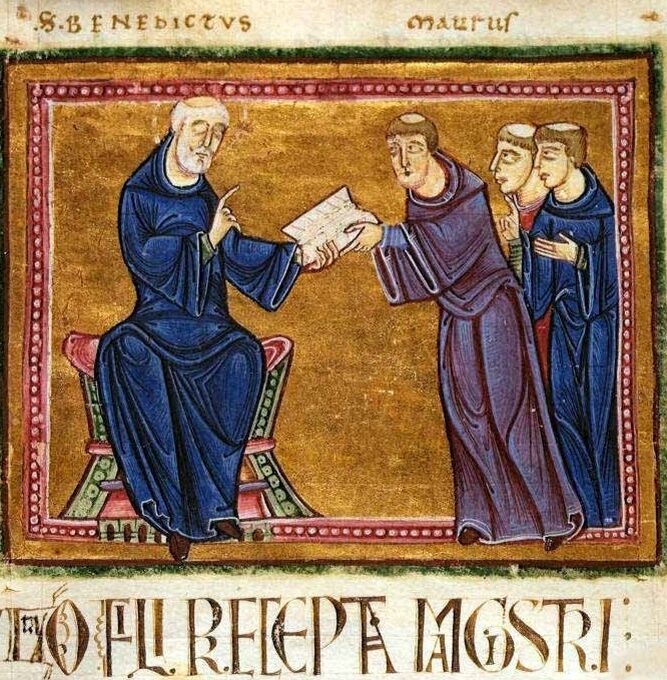 ·S· BENEDICTVS MAURUS
O FILI RECEPTA MAGISTRI: